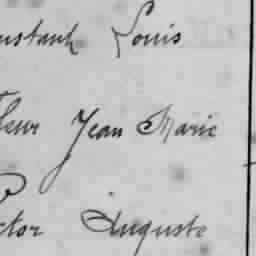 nstant Louis
leur Jean Marie
ctor Auguste